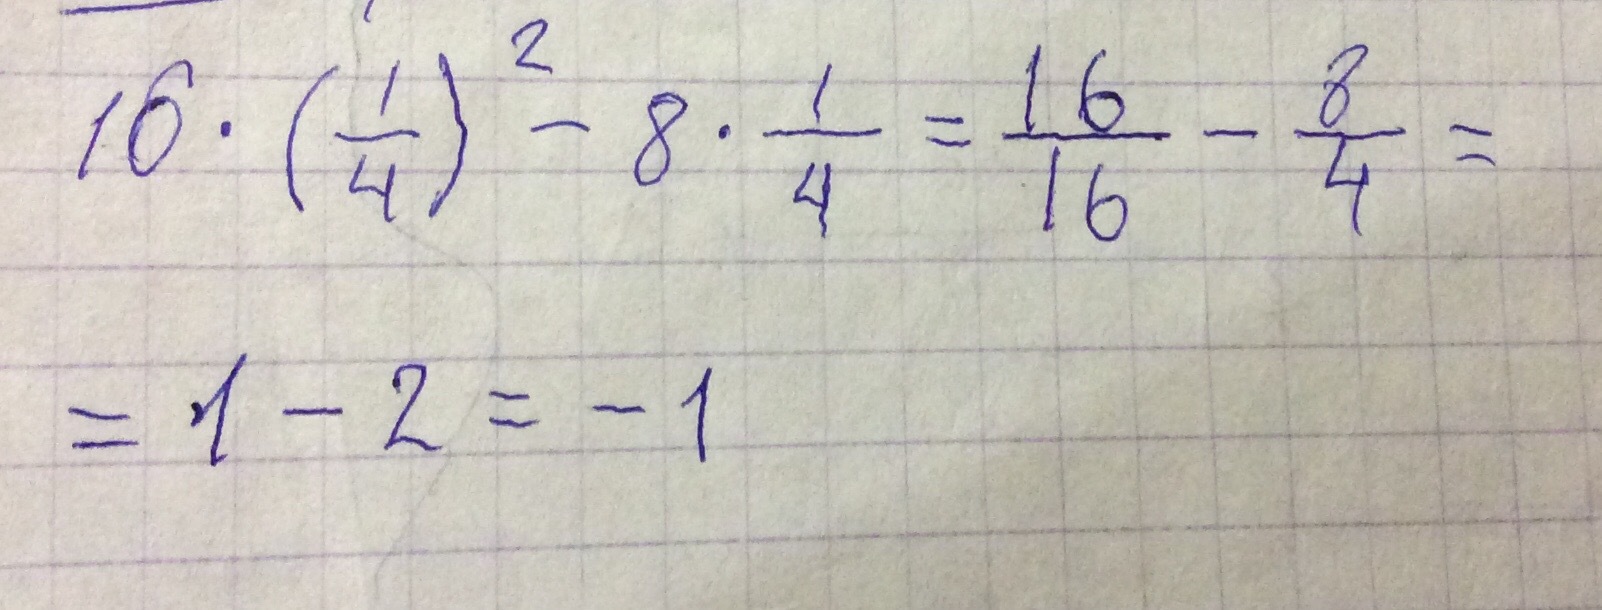 16 · (1/4)² - 8 · 1/4 = 16/16 - 8/4 =
= 1 - 2 = - 1